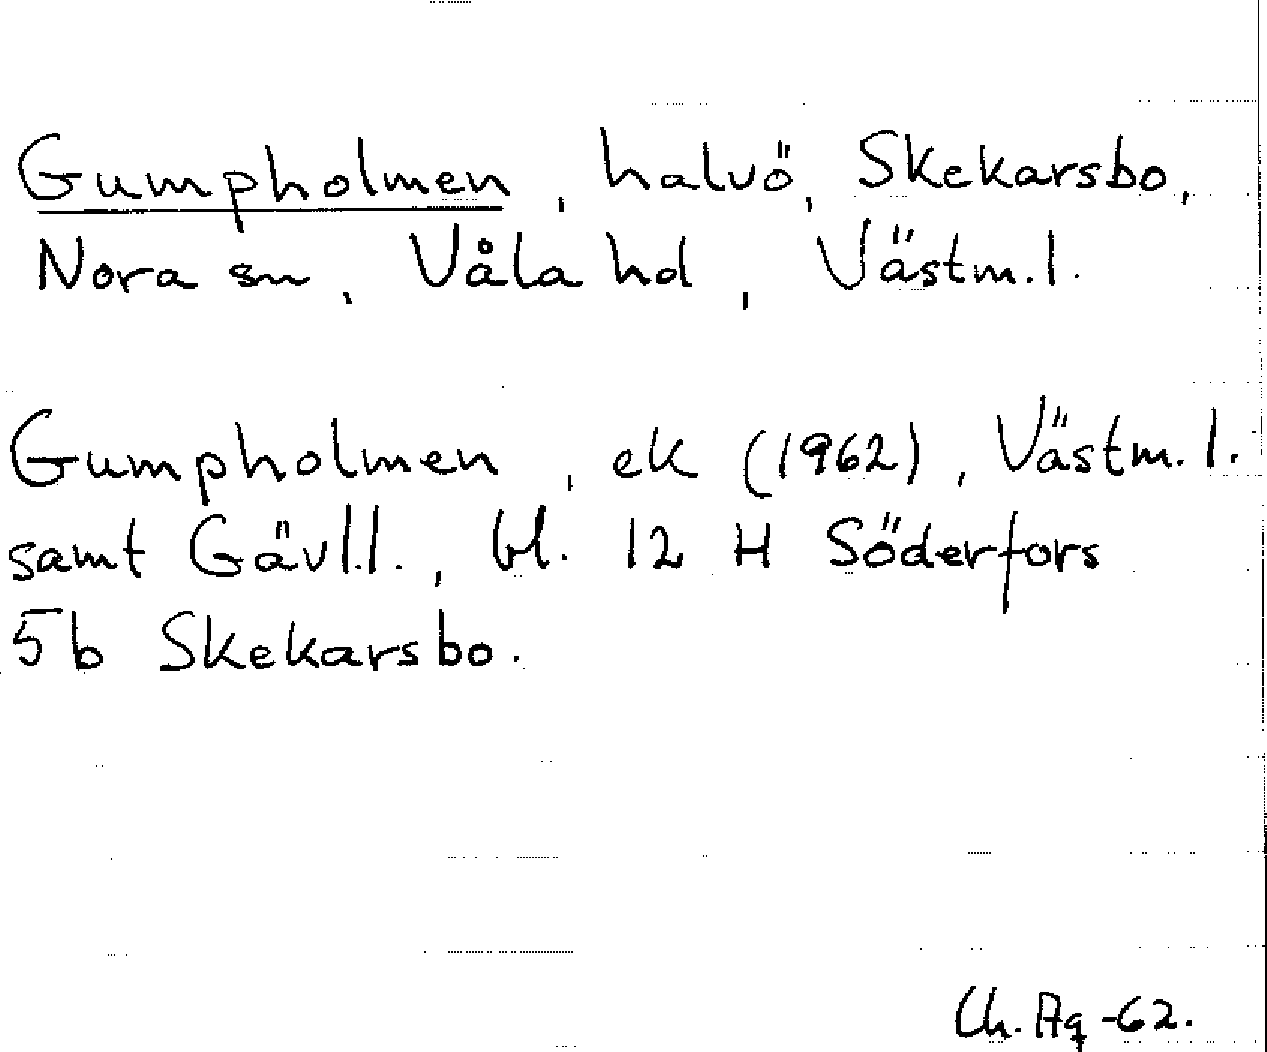 Gumpholmen, halvö, Skekarsbo,
Nora sn, Våla hd, Västm.l.
Gumpholmen, ek (1962), Västm.l.
samt Gävl.l., bl. 12 H Söderfors
5b Skekarsbo.
Ch. Ag -62.